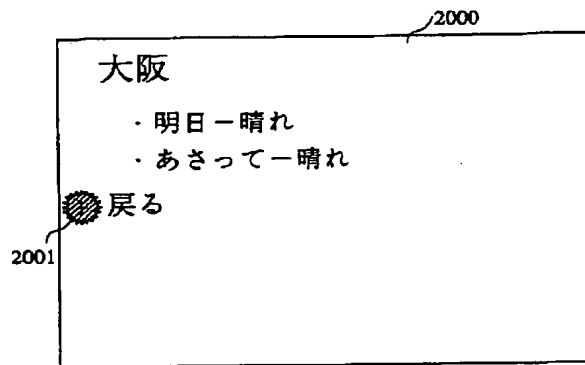 2000
大阪
・明日ー晴れ
・あさってー晴れ
戻る
2001